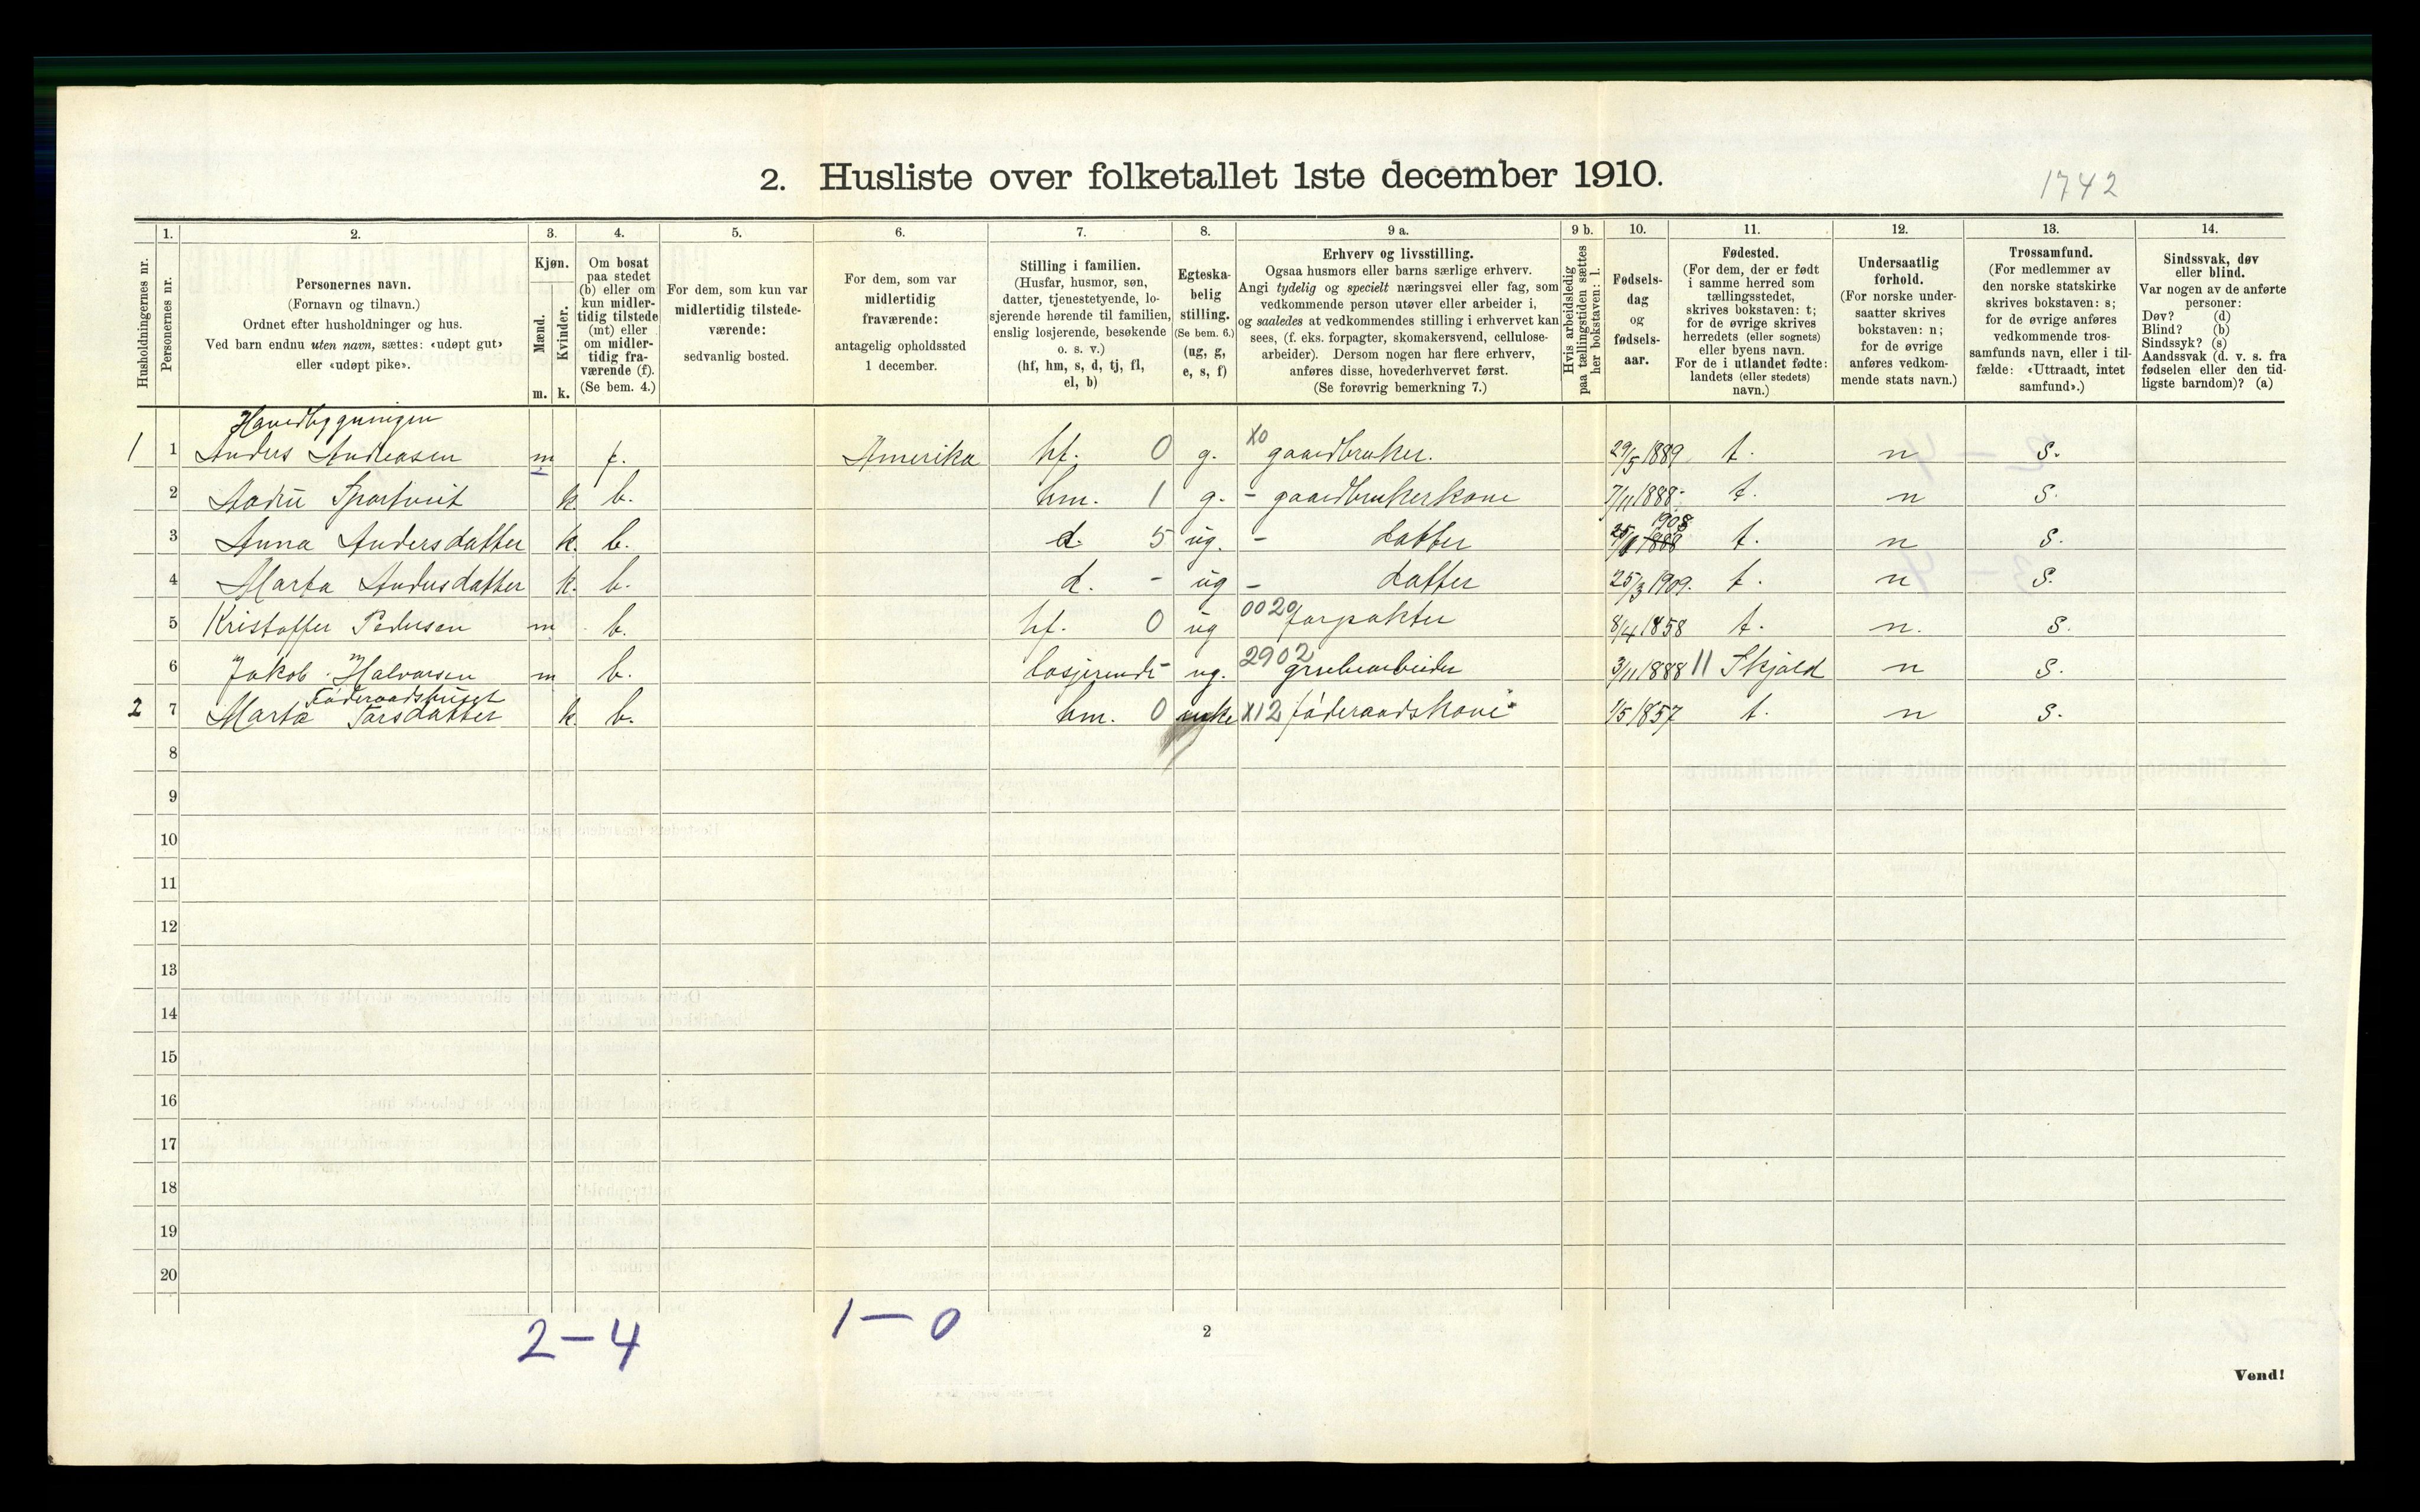 2. Husliste over folketallet 1ste december 1910.
1742
1. 2. 3. 4. 5. 6. 7. 8. 9 a. 9 b. 10. 11. 12. 13. 14.
Husholdningernes nr.
Personernes nr.
Personernes navn.
(Fornavn og tilnavn.)
Ordnet efter husholdninger og hus.
Ved barn endnu uten navn, sættes: «udøpt gut»
eller «udøpt pike».
Kjøn.
Mænd.
Kvinder.
m. k.
Om bosat
paa stedet
(b) eller om
kun midler-
tidig tilstede
(mt) eller
om midler-
tidig fra-
værende (f).
(Se bem. 4.)
For dem, som kun var
midlertidig tilstede-
værende:
sedvanlig bosted.
For dem, som var
midlertidig
fraværende:
antagelig opholdssted
1 december.
Stilling i familien.
(Husfar, husmor, søn,
datter, tjenestetyende, lo-
sjerende hørende til familien,
enslig losjerende, besøkende
o. s. v.)
(hf, hm, s, d, tj, fl,
el, b)
Egteska-
belig
stilling.
(Se bem. 6.)
(ug, g,
e, s, f)
Erhverv og livsstilling.
Ogsaa husmors eller barns særlige erhverv.
Angi tydelig og specielt næringsvei eller fag, som
vedkommende person utøver eller arbeider i,
og saaledes at vedkommendes stilling i erhvervet kan
sees, (f. eks. forpagter, skomakersvend, cellulose-
arbeider). Dersom nogen har flere erhverv,
anføres disse, hovederhvervet først.
(Se forøvrig bemerkning 7.)
Hvis arbeidsledig
paa tællingstiden sættes
her bokstaven: l.
Fødsels-
dag
og
fødsels-
aar.
Fødested.
(For dem, der er født
i samme herred som
tællingsstedet,
skrives bokstaven: t;
for de øvrige skrives
herredets (eller sognets)
eller byens navn.
For de i utlandet fødte:
landets (eller stedets)
navn.)
Undersaatlig
forhold.
(For norske under-
saatter skrives
bokstaven: n;
for de øvrige
anføres vedkom-
mende stats navn.)
Trossamfund.
(For medlemmer av
den norske statskirke
skrives bokstaven: s;
for de øvrige anføres
vedkommende tros-
samfunds navn, eller i til-
fælde: «Uttraadt, intet
samfund».)
Sindssvak, døv
eller blind.
Var nogen av de anførte
personer:
Døv? (d)
Blind? (b)
Sindssyk? (s)
Aandssvak (d. v. s. fra
fødselen eller den tid-
ligste barndom)? (a)
Hovedbygningen
1 1 Anders Andreasen m f. Amerika hf. 0 g. X0 gaardbruker. 29/5 1889 t. n s.
2 k b. hm. 1 g. - gaardbrukerkone 7/11 1888 t. n s.
1908
3 Anna Andersdatter k. b. d. 5 ug. - datter 1888 t. n s.
4 Marta Andersdatter k. b. d. - ug - datter 25/3 1909. t. n s.
5 Kristoffer Pedersen m b. hf. 0 ug 0020 forpakter 8/4 1858 t. n. s.
6 Jakob Halvorsen m b. losjerende - ug. 2902 grubearbeider 3/11 1888 11 Skjold n s.
Føderaadshuset
2 7 Marta Larsdatter k. b. hm. 0 enke X12 føderaadskone 1/5 1857 t. n s.
8
9
10
11
12
13
14
15
16
17
18
19
20
2-4
1-0
2
Vend!